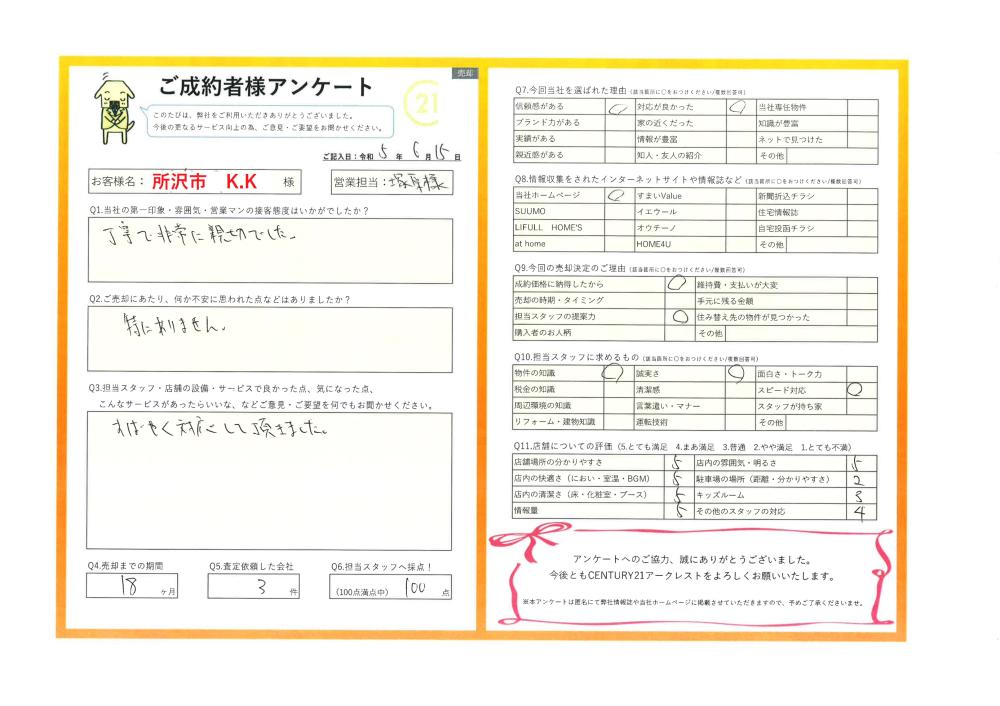 売却
ご成約者様アンケート
21
このたびは、弊社をご利用いただきありがとうございました。
今後の更なるサービス向上の為、ご意見・ご要望をお聞かせください。
ご記入日：令和 5 年 6 月 15 日
お客様名： 所沢市 K.K 様
営業担当： 塚原様
Q1.当社の第一印象・雰囲気・営業マンの接客態度はいかがでしたか？
丁寧で非常に親切でした。
Q2.ご売却にあたり、何か不安に思われた点などはありましたか？
特にありません。
Q3.担当スタッフ・店舗の設備・サービスで良かった点、気になった点、
こんなサービスがあったらいいな、などご意見・ご要望を何でもお聞かせください。
すばやく対応して頂きました。
Q4.売却までの期間
18 ヶ月
Q5.査定依頼した会社
3 件
Q6.担当スタッフへ採点！
(100点満点中) 100 点
Q7.今回当社を選ばれた理由（該当箇所に○をおつけください/複数回答可）
信頼感がある ○ 対応が良かった ○ 当社専任物件
ブランド力がある 家の近くだった 知識が豊富
実績がある 情報が豊富 ネットで見つけた
親近感がある 知人・友人の紹介 その他
Q8.情報収集をされたインターネットサイトや情報誌など（該当箇所に○をおつけください/複数回答可）
当社ホームページ ○ すまいValue 新聞折込チラシ
SUUMO イエウール 住宅情報誌
LIFULL HOME'S オウチーノ 自宅投函チラシ
at home HOME4U その他
Q9.今回の売却決定のご理由（該当箇所に○をおつけください/複数回答可）
成約価格に納得したから ○ 維持費・支払いが大変
売却の時期・タイミング 手元に残る金額
担当スタッフの提案力 ○ 住み替え先の物件が見つかった
購入者のお人柄 その他
Q10.担当スタッフに求めるもの（該当箇所に○をおつけください/複数回答可）
物件の知識 ○ 誠実さ ○ 面白さ・トーク力
税金の知識 清潔感 スピード対応 ○
周辺環境の知識 言葉遣い・マナー スタッフが持ち家
リフォーム・建物知識 運転技術 その他
Q11.店舗についての評価（5.とても満足 4.まあ満足 3.普通 2.やや満足 1.とても不満）
店舗場所の分かりやすさ 5 店内の雰囲気・明るさ 5
店内の快適さ（におい・室温・BGM） 5 駐車場の場所（距離・分かりやすさ） 2
店内の清潔さ（床・化粧室・ブース） 5 キッズルーム 3
情報量 5 その他のスタッフの対応 4
アンケートへのご協力、誠にありがとうございました。
今後ともCENTURY21アークレストをよろしくお願いいたします。
※本アンケートは匿名にて弊社情報誌や当社ホームページに掲載させていただきますので、予めご了承くださいませ。